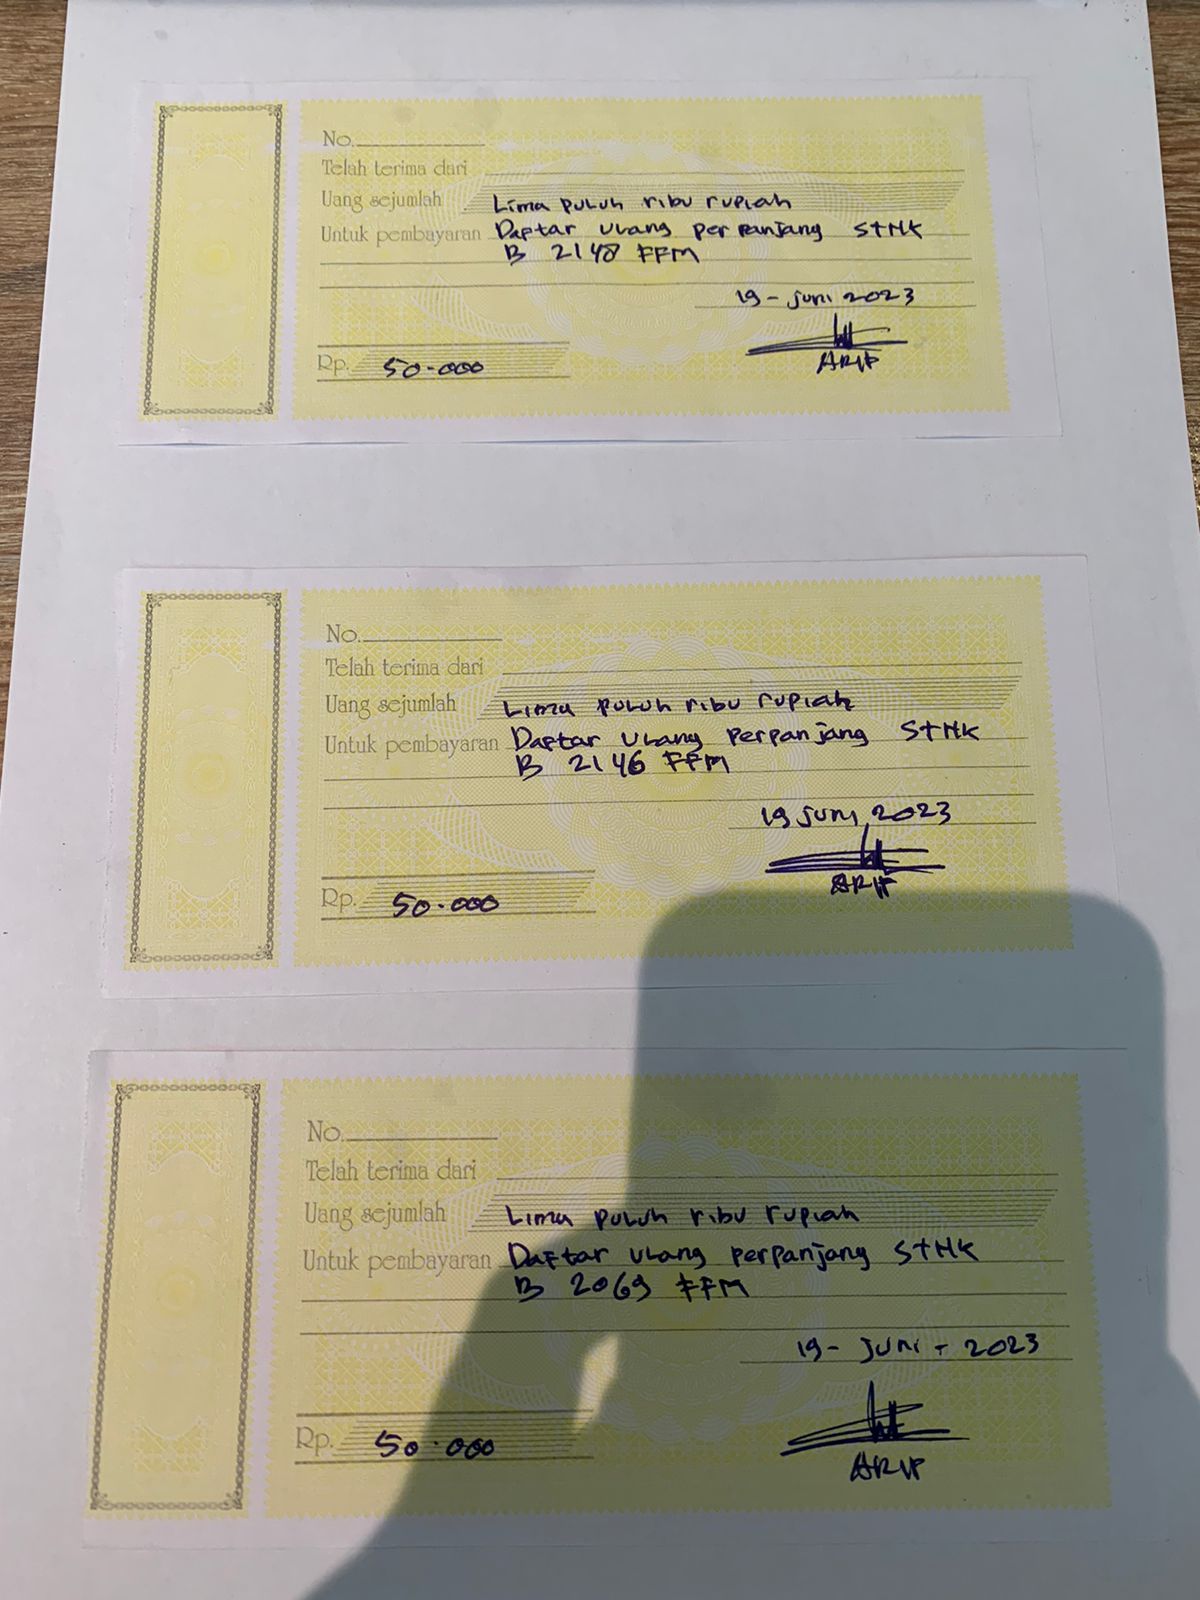 No.
Telah terima dari
Uang sejumlah Lima puluh ribu rupiah
Untuk pembayaran Daftar ulang perpanjang STNK
B 2148 FFM
19 - Juni 2023
Rp. 50.000
ARIF
No.
Telah terima dari
Uang sejumlah Lima puluh ribu rupiah
Untuk pembayaran Daftar ulang perpanjang STNK
B 2146 FFM
19 Juni 2023
ARIF
Rp. 50.000
No.
Telah terima dari
Uang sejumlah Lima puluh ribu rupiah
Untuk pembayaran Daftar ulang perpanjang STNK
B 2069 FFM
19 - Juni - 2023
Rp. 50.000
ARIF